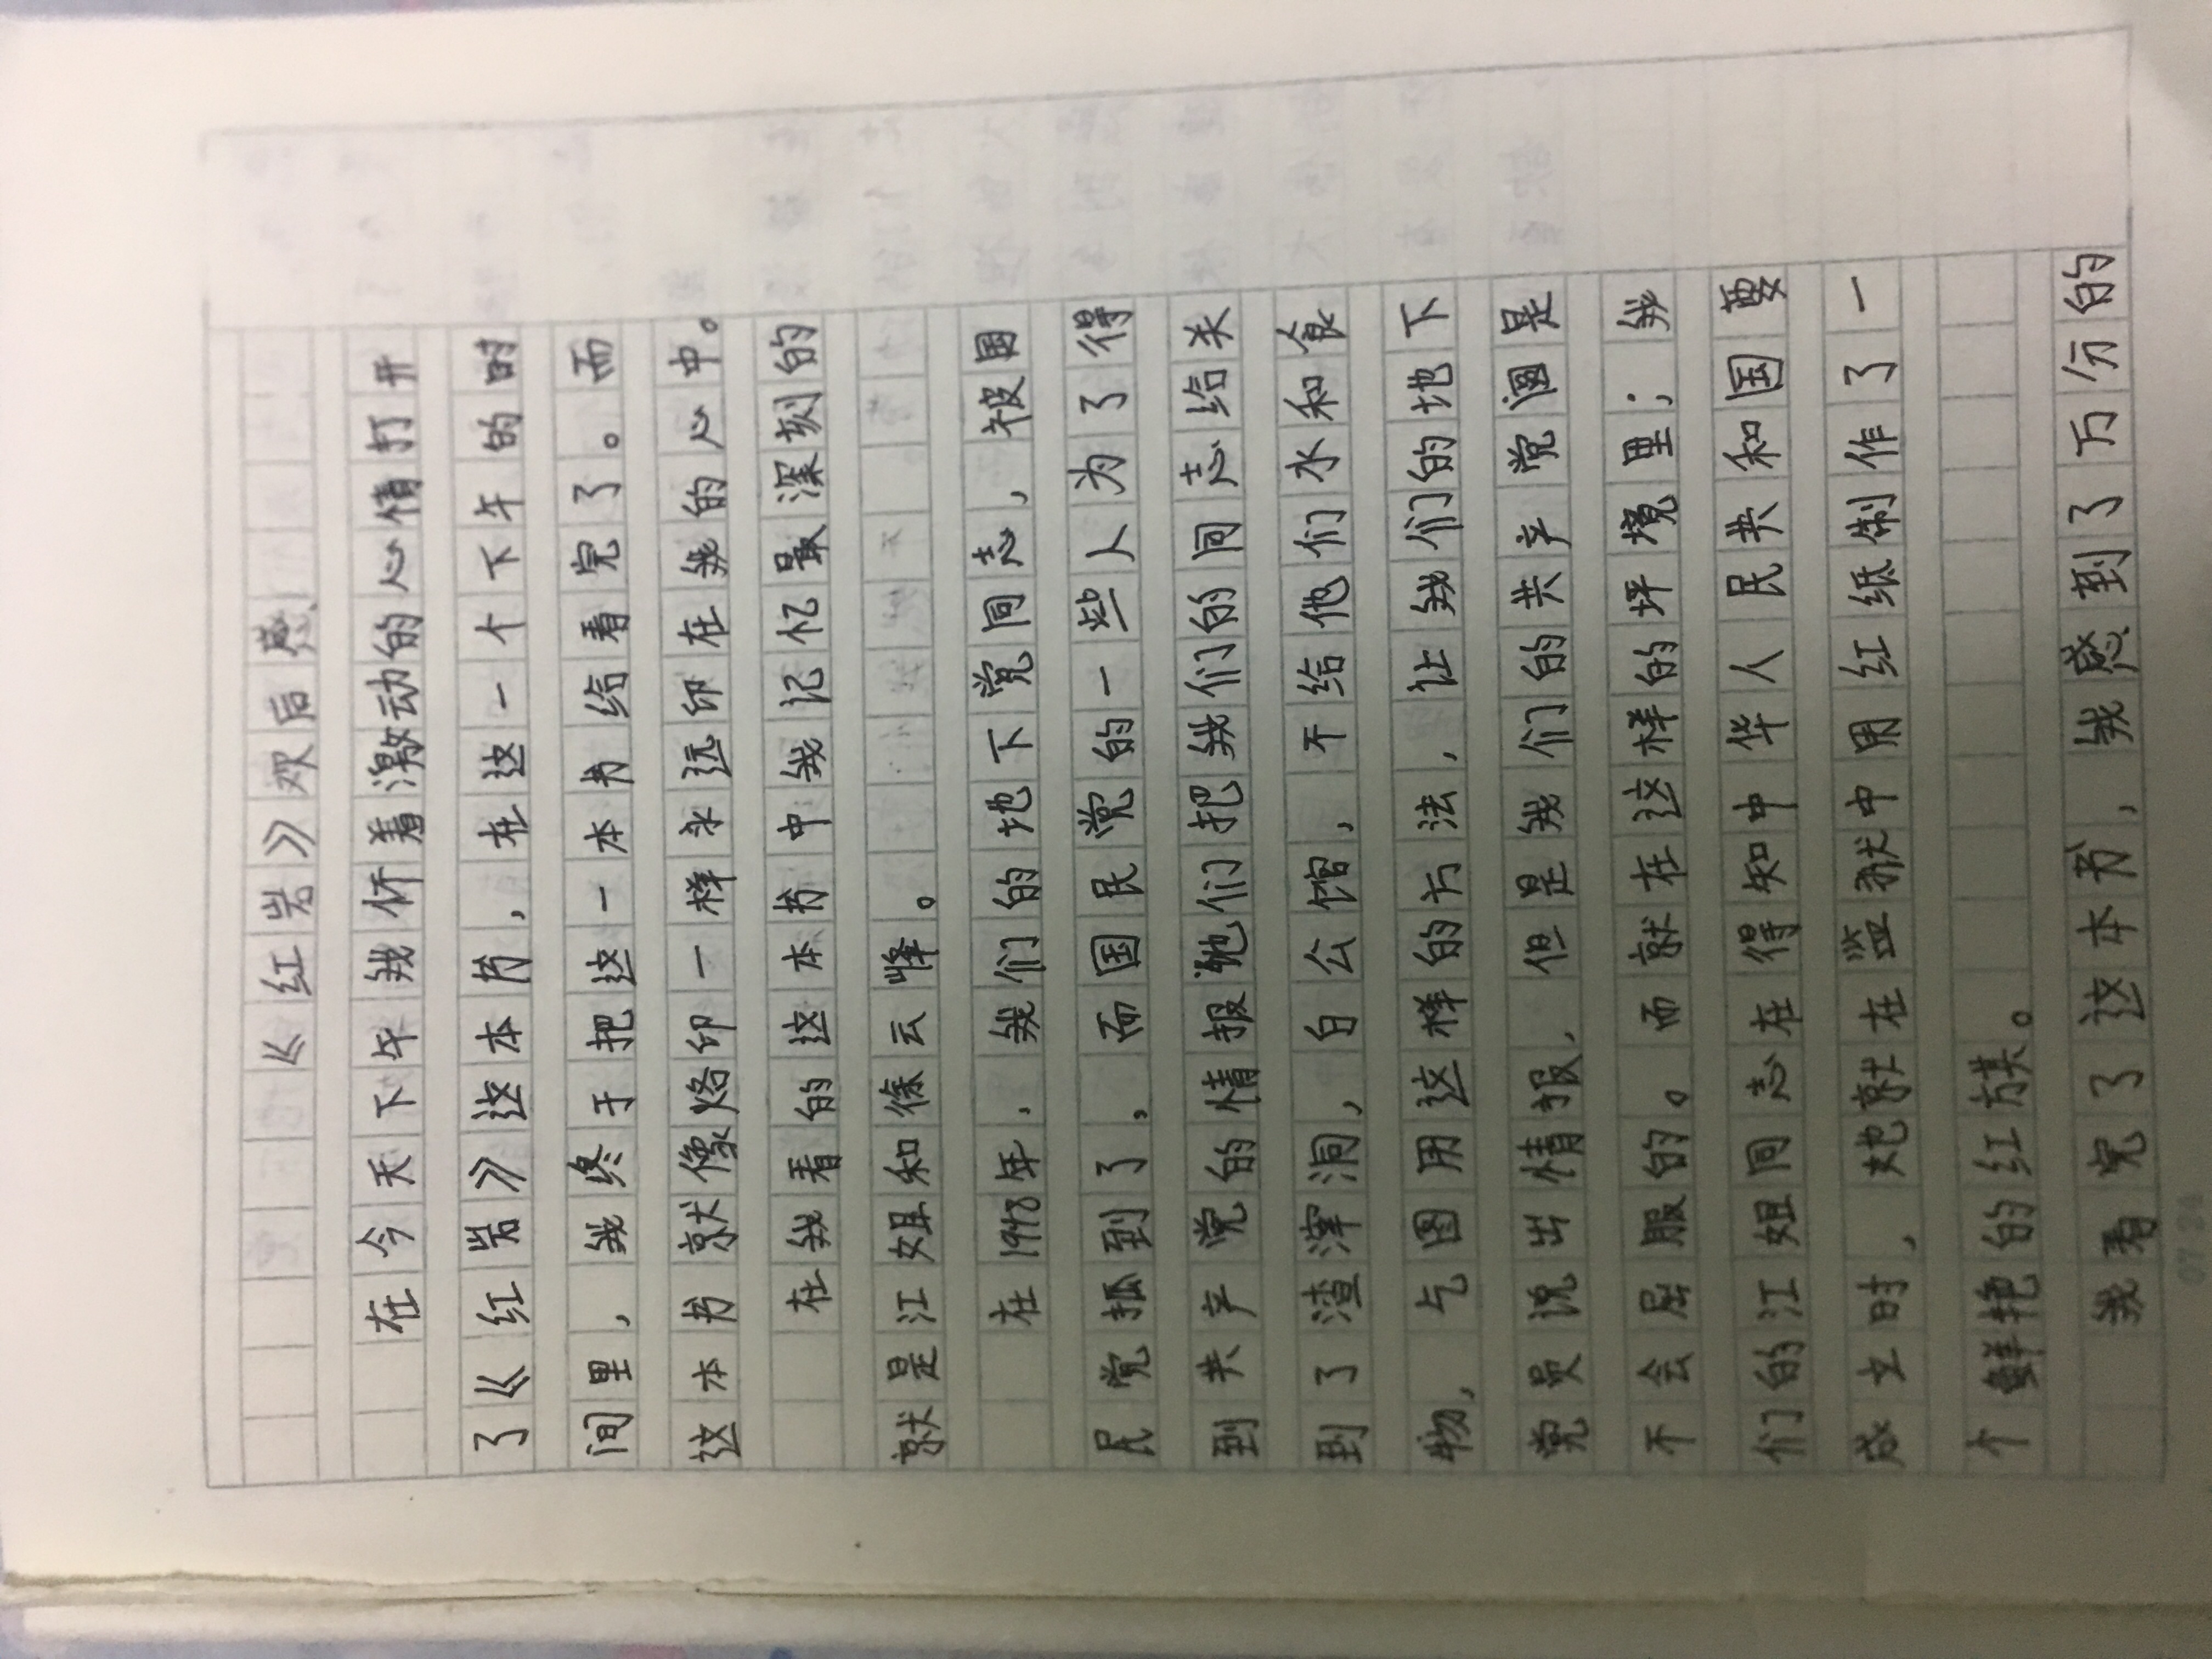 《红岩》观后感
在今天下午我怀着激动的心情打开
了《红岩》这本书,在这一个下午的时
间里,我终于把这一本书给看完了。而
这本书就像烙印一样永远印在我的心中。
在我看的这本书中我记忆最深刻的
就是江姐和徐云峰。
在1948年,我们的地下党同志,被国
民党抓到了,而国民党的一些人为了得
到共产党的情报他们把我们的同志给关
到了渣滓洞,白公馆,不给他们水和食
物,乞图用这样的方法,让我们的地下
党员说出情报,但是我们的共产党员是
不会屈服的。而就在这样的环境里;我
们的江姐同志在得知中华人民共和国要
成立时,她就在监狱中用红纸制作了一
个鲜艳的红旗。
我看完了这本书,我感到了万分的